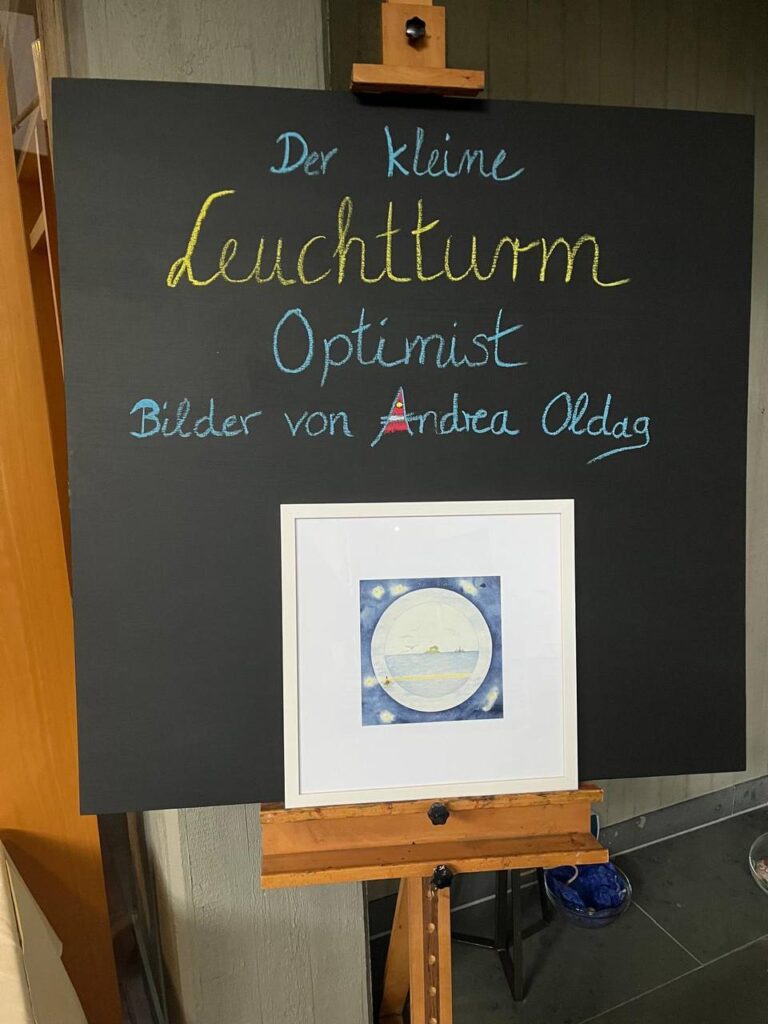 Der kleine
Leuchtturm
Optimist
Bilder von Andrea Oldag